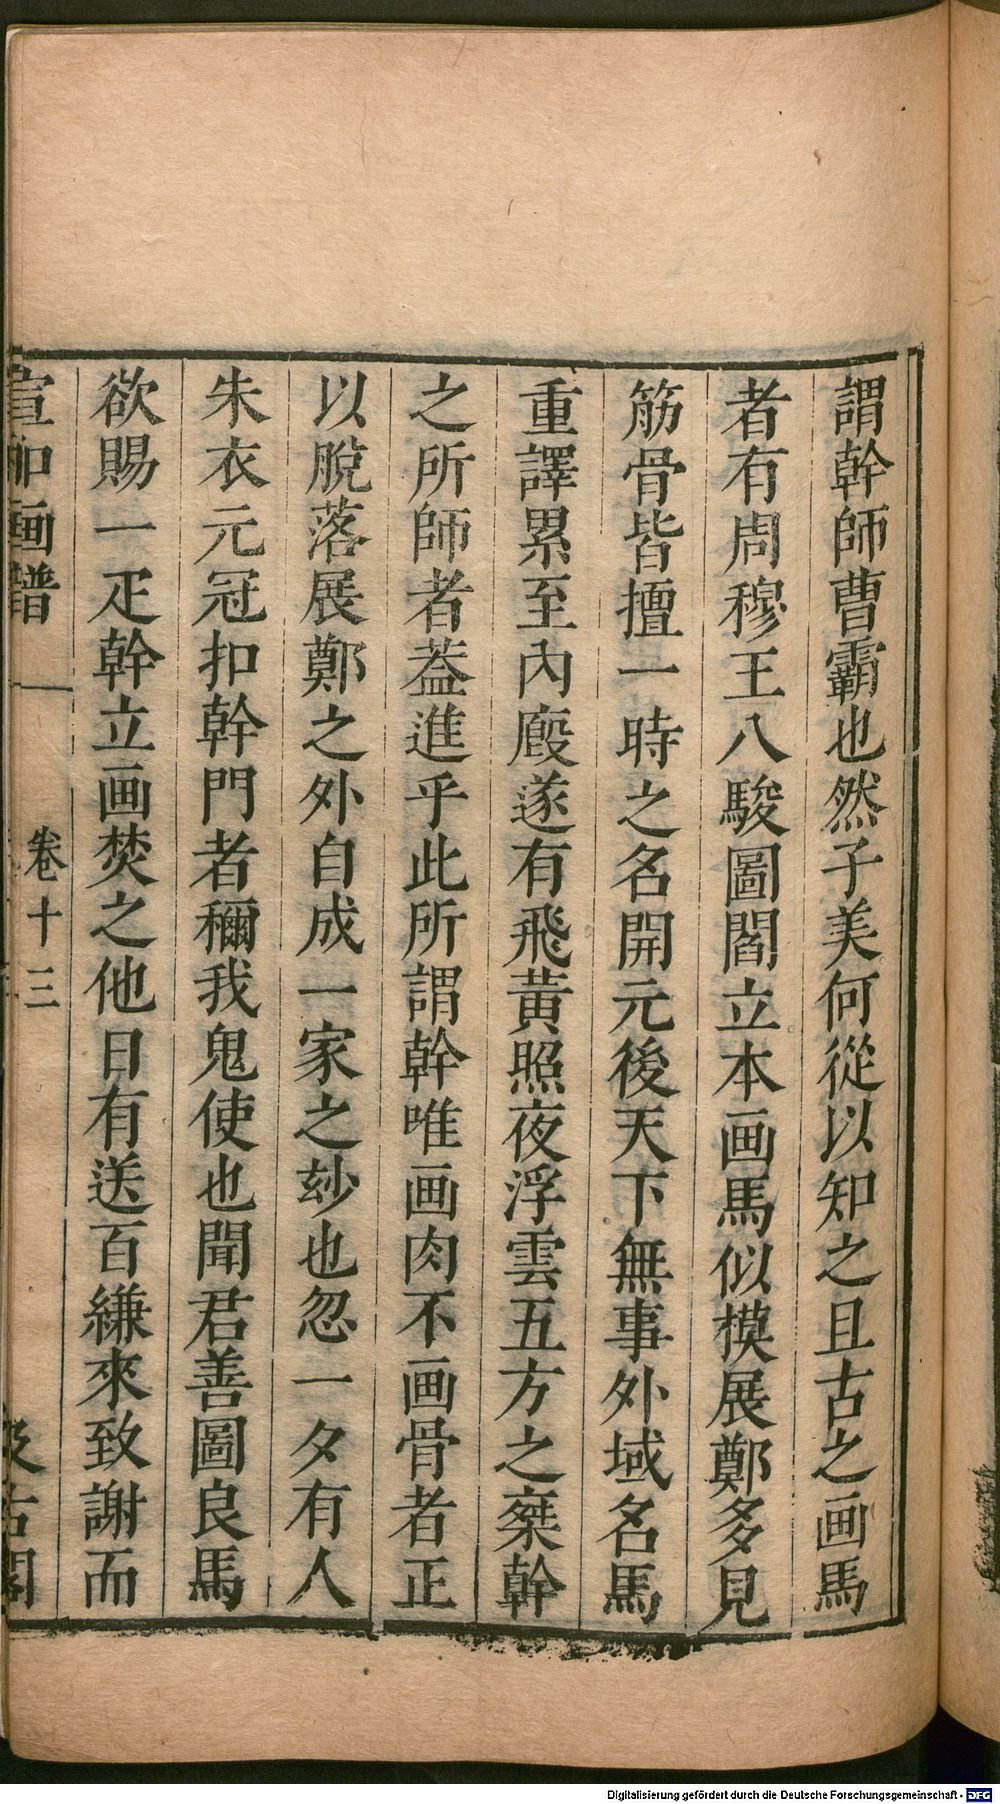 謂幹師曹霸也然子美何從以知之且古之画馬
者有周穆王八駿圖閻立本画馬似模展鄭多見
筋骨皆擅一時之名開元後天下無事外域名馬
重譯累至內廄遂有飛黃照夜浮雲五方之椉幹
之所師者葢進乎此所謂幹唯画肉不画骨者正
以脫落展鄭之外自成一家之玅也忽一夕有人
朱衣元冠扣幹門者穪我鬼使也聞君善圖良馬
欲賜一疋幹立画焚之他日有送百縑來致謝而
宣和画譜 卷十三 汲古閣
Digitalisierung gefördert durch die Deutsche Forschungsgemeinschaft - DFG